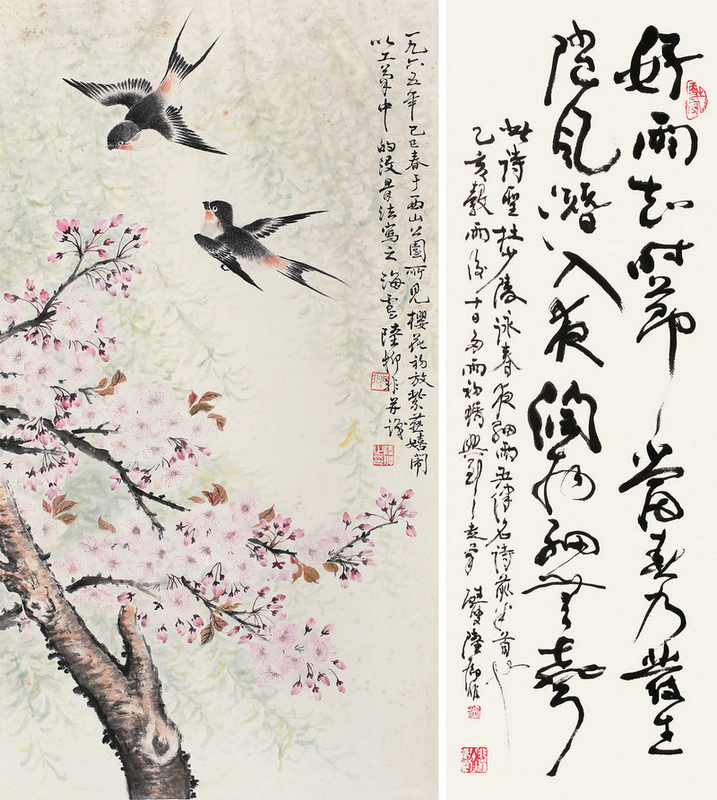 一九六五年乙巳春于西山公園所見櫻花初放紫燕嬉鬧
以工筆中的沒骨法寫之海虞陸抑非并識
好雨知时節當春乃發生
隨風潛入夜潤物細無聲
此詩聖杜少陵詠春夜細雨五律名詩前半首也
乙亥穀雨後十日多雨初晴興到走筆 叟陸抑非